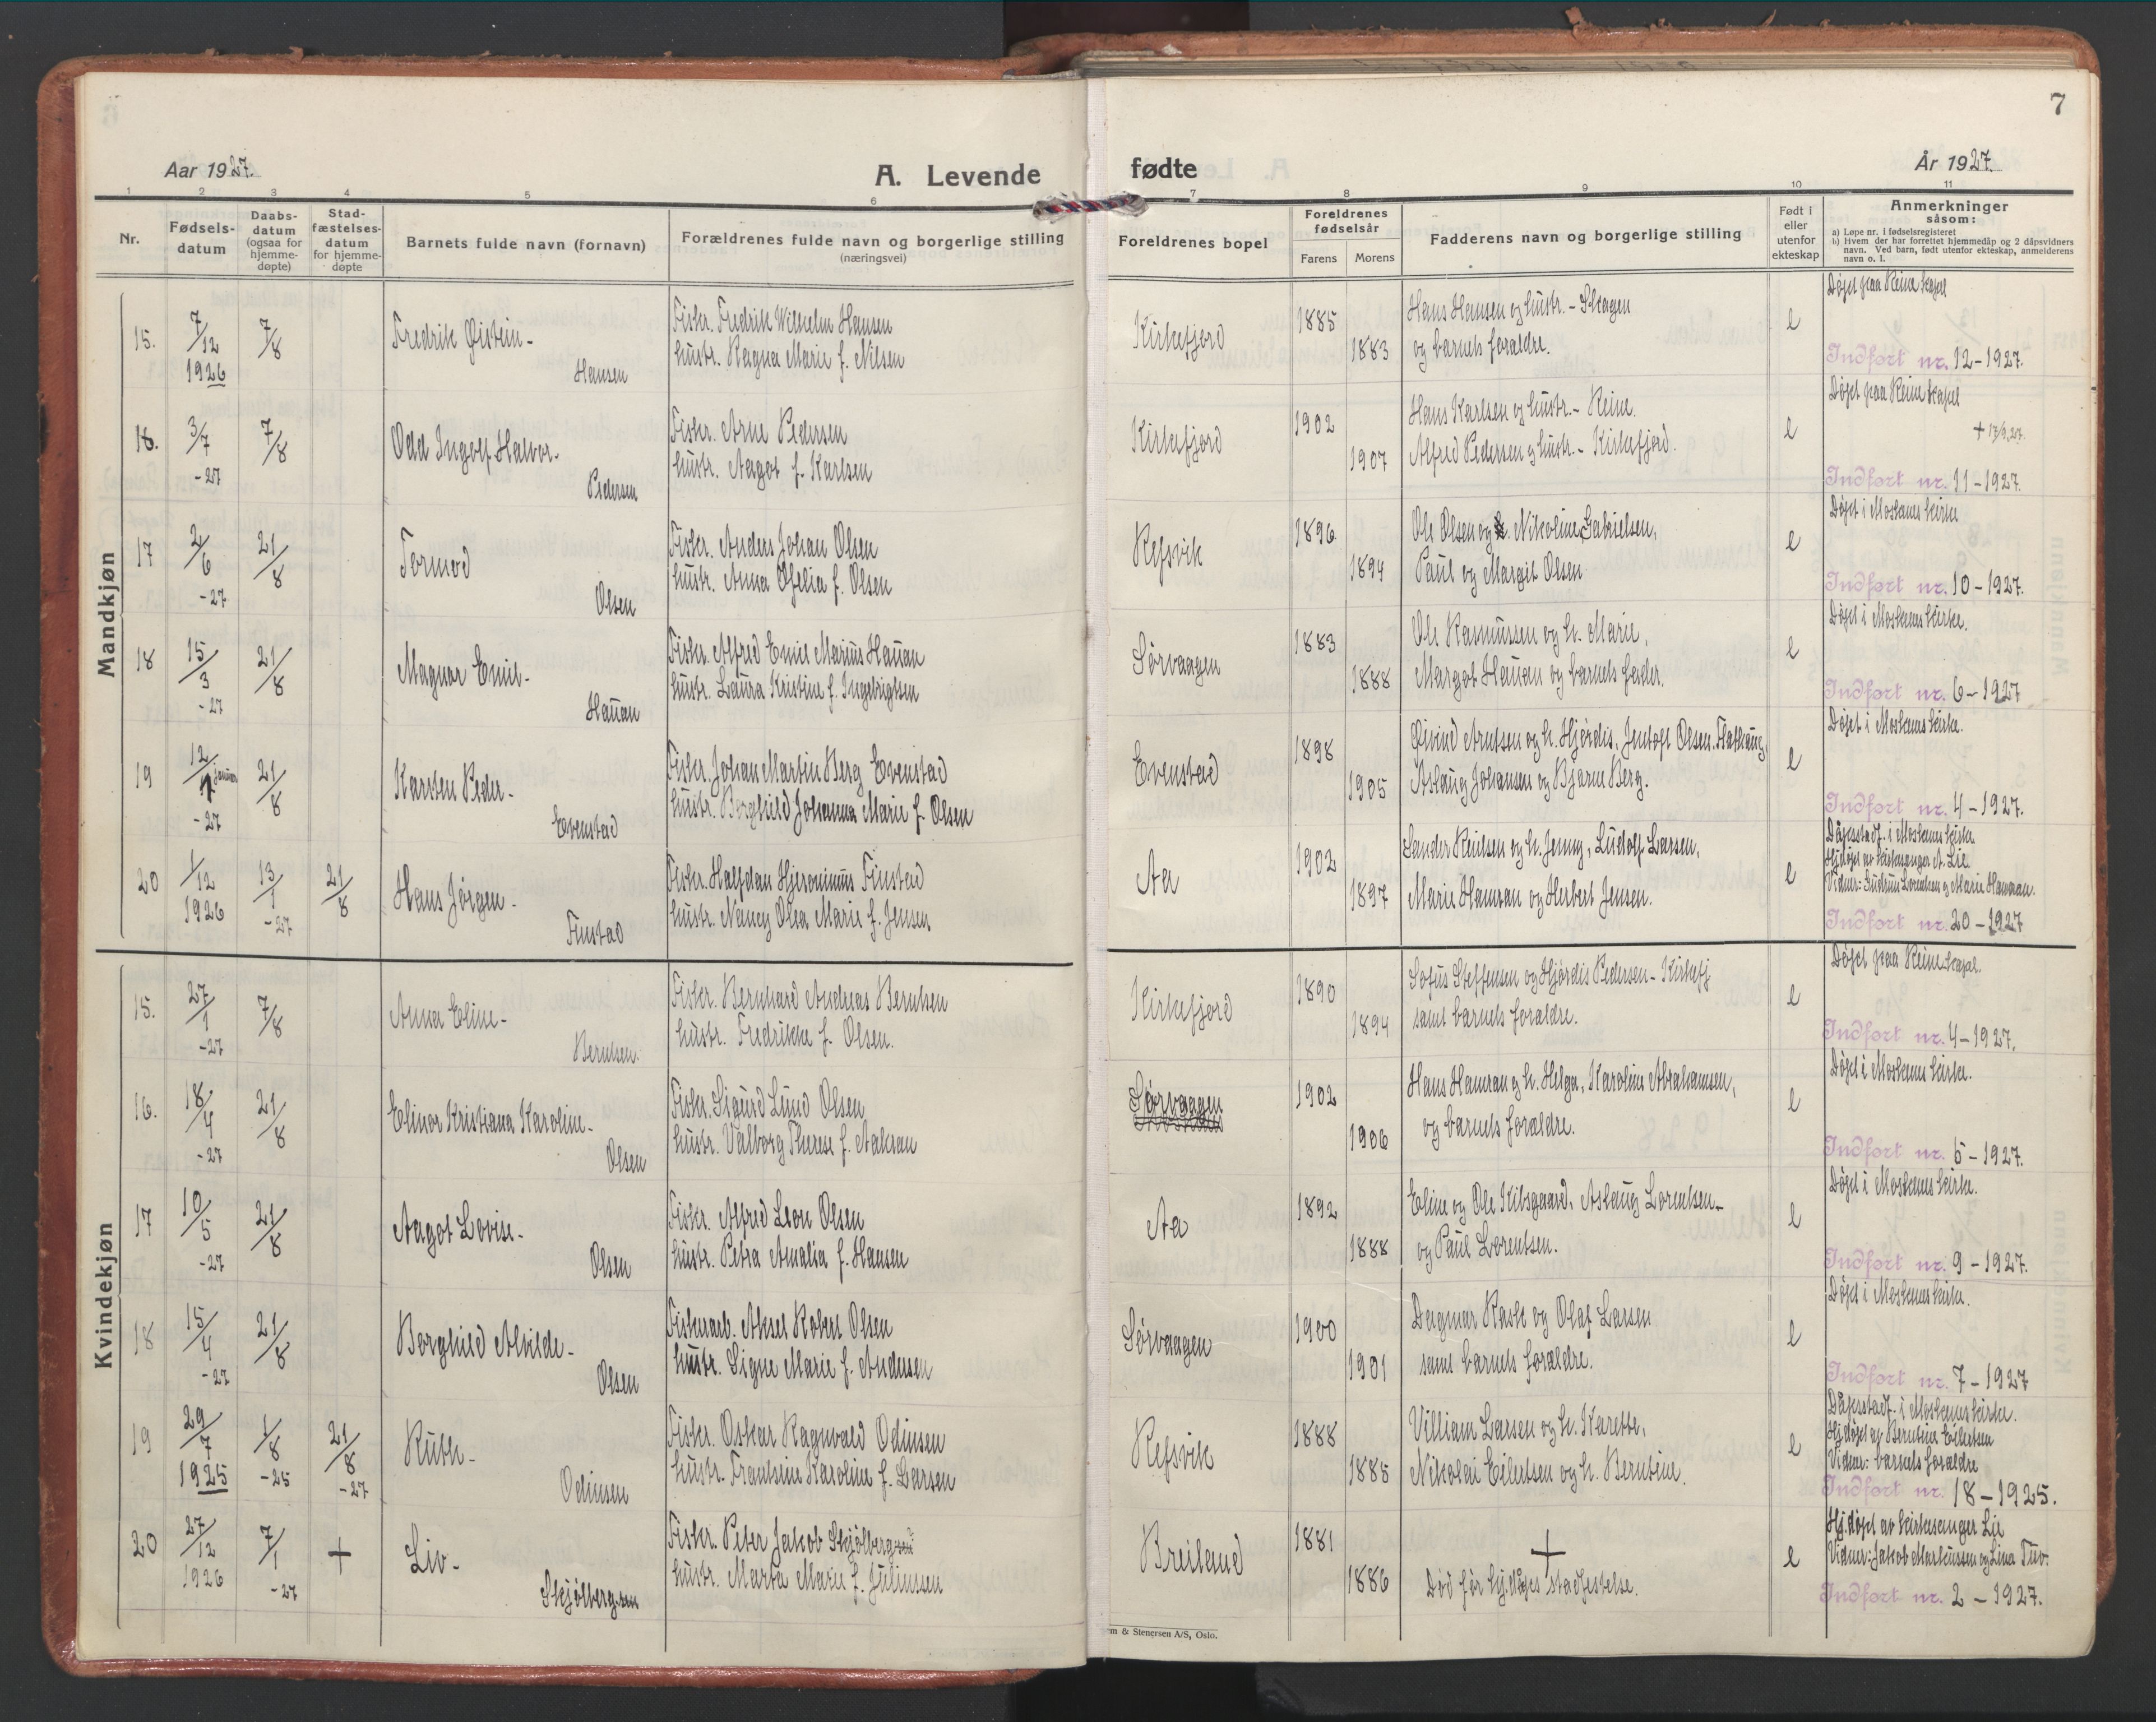 7
Aar 1927.
A. Levende
fødte
År 1927.
1 2 3 4 5 6 7 8 9 10 11
Nr.
Fødsels-
datum
Daabs-
datum
(ogsaa for
hjemme-
døpte)
Stad-
fæstelses-
datum
for hjemme-
døpte
Barnets fulde navn (fornavn)
Forældrenes fulde navn og borgerlige stilling
(næringsvei)
Foreldrenes bopel
Foreldrenes
fødselsår
Farens
Morens
Fadderens navn og borgerlige stilling
Født i
eller
utenfor
ekteskap
Anmerkninger
såsom:
a) Løpe nr. i fødselsregisteret
b) Hvem der har forrettet hjemmedåp og 2 dåpsvidners
navn. Ved barn, født utenfor ekteskap, anmelderens
navn o. l.
Mandkjøn
15. 7/12 1926 7/8
Fredrik Øistein-
Hansen
Fisker. Fredrik Wilhelm Hansen
hustr. Ragna Marie f. Nilsen
Kirkefjord
1885
1883
Hans Hansen og hustr. - Skagen
og barnets foraldre.
e
Døpt paa Reine kapel
Indført nr. 12-1927.
18. 3/7 -27 7/8
Odd Ingolf Halvor-
Pedersen
Fisker. Arne Pedersen
hustr. Aagot f. Karlsen
Kirkefjord
1902
1907
Hans Karlsen og hustr. - Reine.
Alfred Pedersen og hustr. - Kirkefjord.
e
Døpt paa Reine kapel
+ 17/9.27.
Indført nr. 11-1927.
17 2/6 -27 21/8
Tormod
Olsen
Fisker. Anders Johan Olsen
hustr. Anna Ofelia f. Olsen
Refsvik
1896
1894
Ole Olsen og Nikoline Gabrielsen,
Paul og Margit Olsen
e
Døpt i Moskenes kirke
Indført nr. 10-1927.
18 15/3 -27 21/8
Magnor Emil-
Hauan
Fisker. Alfred Emil Marius Hauan
hustr. Laura Kristine f. Ingebrigtsen
Sørvaagen
1883
1888
Ole Rasmussen og h. Marie,
Margot Hauan og barnets fader.
e
Døpt i Moskenes kirke.
Indført nr. 6-1927
19 12/1 januar -27 21/8
Karsten Peder-
Evenstad
Fisker. Johan Martin Berg Evenstad
hustr. Borghild Johanna Marie f. Olsen
Evenstad
1898
1905
Øivind Arntsen og h. Hjørdis, Jentoft Olsen. Flathaug,
Aslaug Johansen og Bjarne Berg.
e
Døpt i Moskenes kirke.
Indført nr. 4-1927.
20 1/12 1926 13/1 -27 21/8
Hans Jørgen-
Finstad
Fisker. Halfdan Hjeronimus Finstad
hustr. Nancy Olea Marie f. Jensen
Aa
1902
1897
Sander Reilsen og h. Jenny, Ludolf Larsen,
Marie Hamran og Herbert Jensen.
e
Dåpsstadf. i Moskenes kirke
Hj.døpt av kirkesanger A. Lie
Vidner: Gudrun Lorentsen og Marie Hamran.
Indført nr. 20-1927
Kvindekjøn
15. 27/1 -27 7/8
Anna Eline-
Berntsen
Fisker. Bernhard Andreas Berntsen
hustr. Fredrikke f. Olsen.
Kirkefjord
1890
1894
Sofus Steffensen og Hjørdis Pedersen - Kirkefj
samt barnets foraldre.
e
Døpt paa Reine kapel.
Indført nr. 4-1927.
16. 18/4 -27 21/8
Elinor Kristiana Karoline-
Olsen
Fisker. Sigurd Lund Olsen
hustr. Valborg Therese f. Aakran
Sørvaagen
1902
1906
Hans Hamran og h. Helga, Karoline Abrahamsen,
og barnets foraldre.
e
Døpt i Moskenes kirke.
Indført nr. 5-1927.
17 10/5 -27 21/8
Aagot Lovise-
Olsen
Fisker. Alfred Leon Olsen
hustr. Petra Amalia f. Hansen
Aa
1892
1888
Eline og Ole Kibsgaard, Aslaug Lorentsen-
og Paul Lorentsen.
e
Døpt i Moskenes kirke.
Indført nr. 9-1927.
18 15/4 -27 21/8
Borghild Alvilde-
Olsen
Fiskerarb. Aksel Robert Olsen
hustr. Signe Marie f. Andersen
Sørvaagen
1900
1901
Dagmar Rasch og Olaf Larsen
samt barnets foraldre.
e
Døpt i Moskenes kirke.
Indført nr. 7-1927
19 29/7 1925 1/8 -25 21/8 -27
Ruth-
Odinsen
Fisker. Oskar Ragnvald Odinsen
hustr. Frantsine Karoline f. Larsen
Refsvik
1888
1885
Villiam Larsen og h. Karette,
Nikolai Eilertsen og h. Berntine.
e
Dåpsstadf. i Moskenes kirke.
Hj.døpt af Berntine Eilertsen
Vidner: barnets foraldre
Indført nr. 18-1925.
20 27/12 1926 7/1 -27 +
Liv-
Skjølbergsen
Fisker. Peter Jakob Skjølbergsen
hustr. Marta Marie f. Juliussen
Breiland
1881
1886
+
Død før hj.dåpes stadfestelse.
e
Hj.døpt av kirkesanger Lie
Vidner: Jakob Markussen og Lina Tuv.
Indført nr. 2-1927.
em & Stenersen A/S, Oslo.